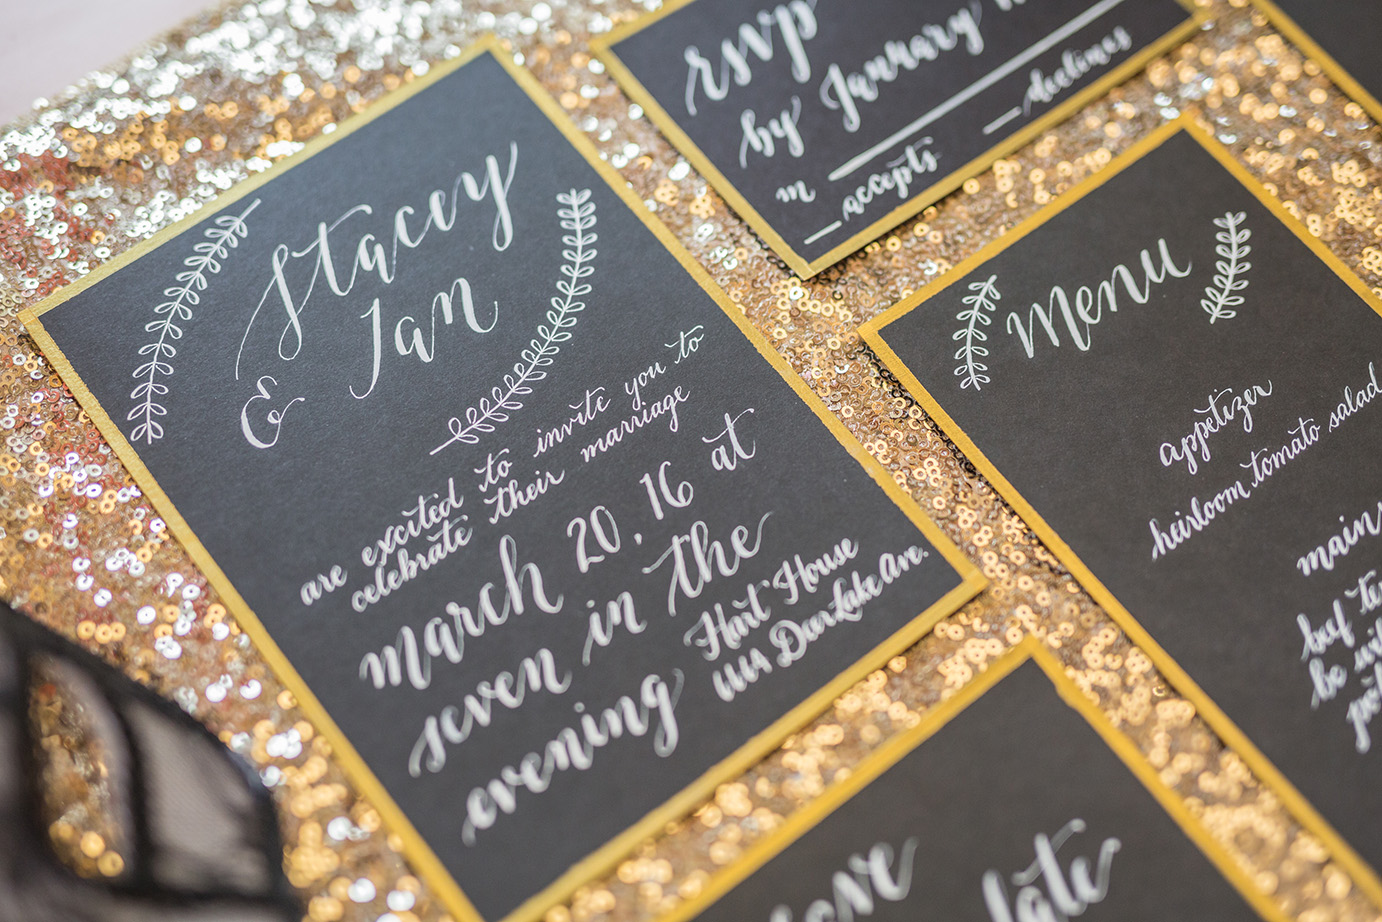 Stacey
& Ian
are excited to invite you to
celebrate their marriage
march 20, 16 at
seven in the
evening
Hart House
Deer Lake Ave.
rsvp
by January
m
accepts
declines
menu
appetizer
heirloom tomato salad
mains
be